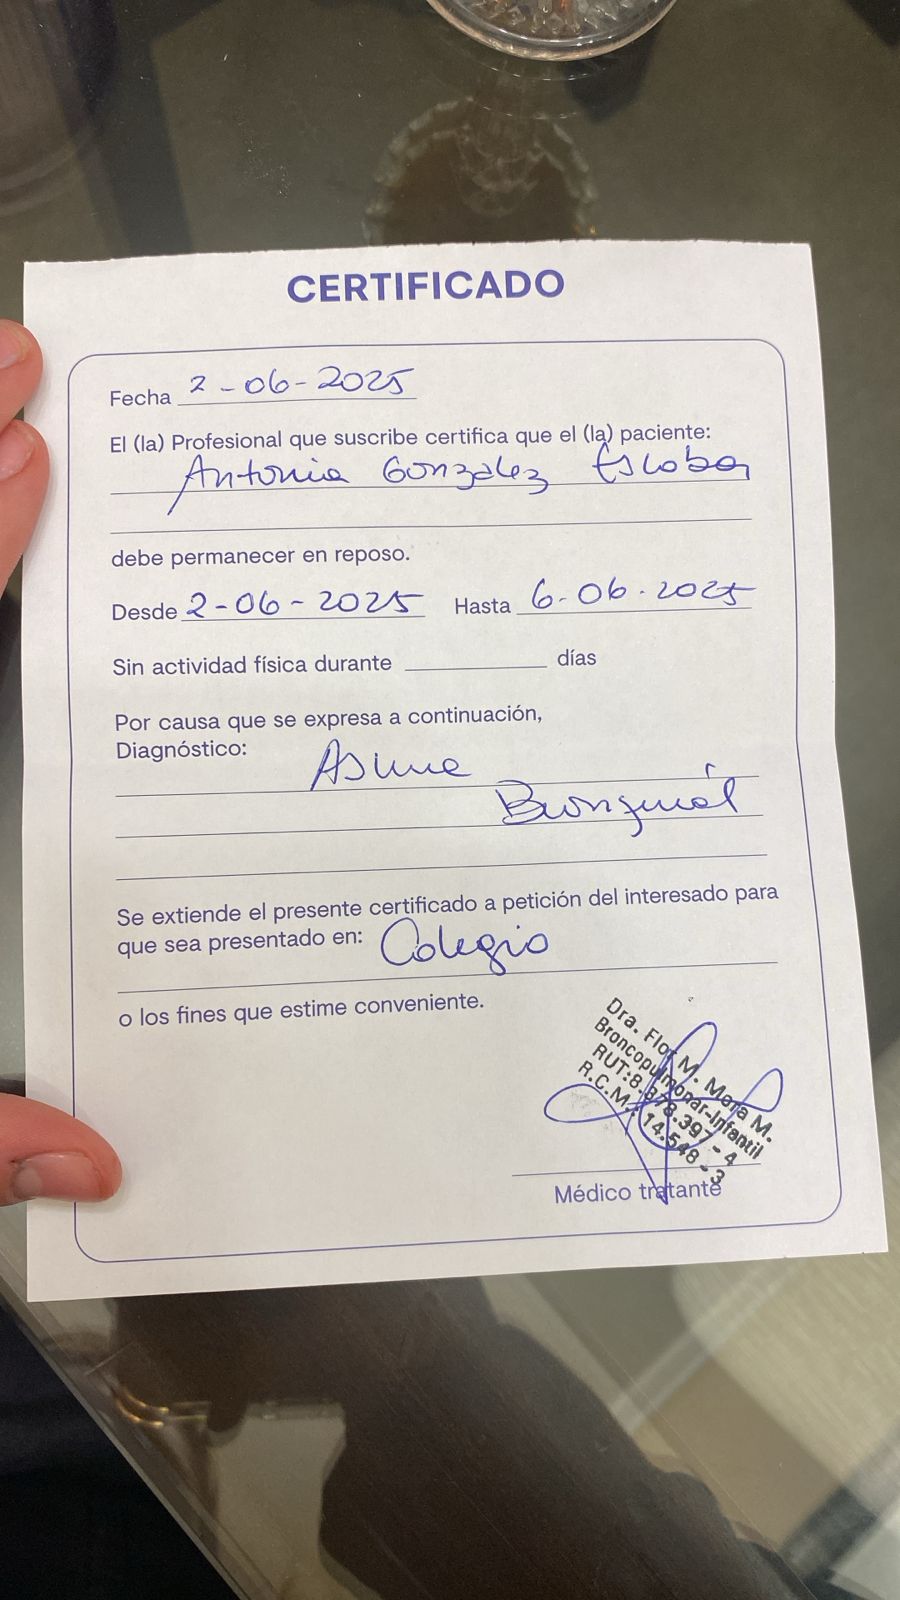 CERTIFICADO
Fecha 2-06-2025
El (la) Profesional que suscribe certifica que el (la) paciente:
Antonia Gonzalez Escobar
debe permanecer en reposo.
Desde 2-06-2025 Hasta 6-06-2025
Sin actividad física durante ________ días
Por causa que se expresa a continuación,
Diagnóstico:
Asma
Bronquial
Se extiende el presente certificado a petición del interesado para
que sea presentado en: Colegio
o los fines que estime conveniente.
Dra. Flor M. Mora M.
Broncopulmonar-Infantil
RUT:8.878.397-4
R.C.M.: 14.548-3
Médico tratante